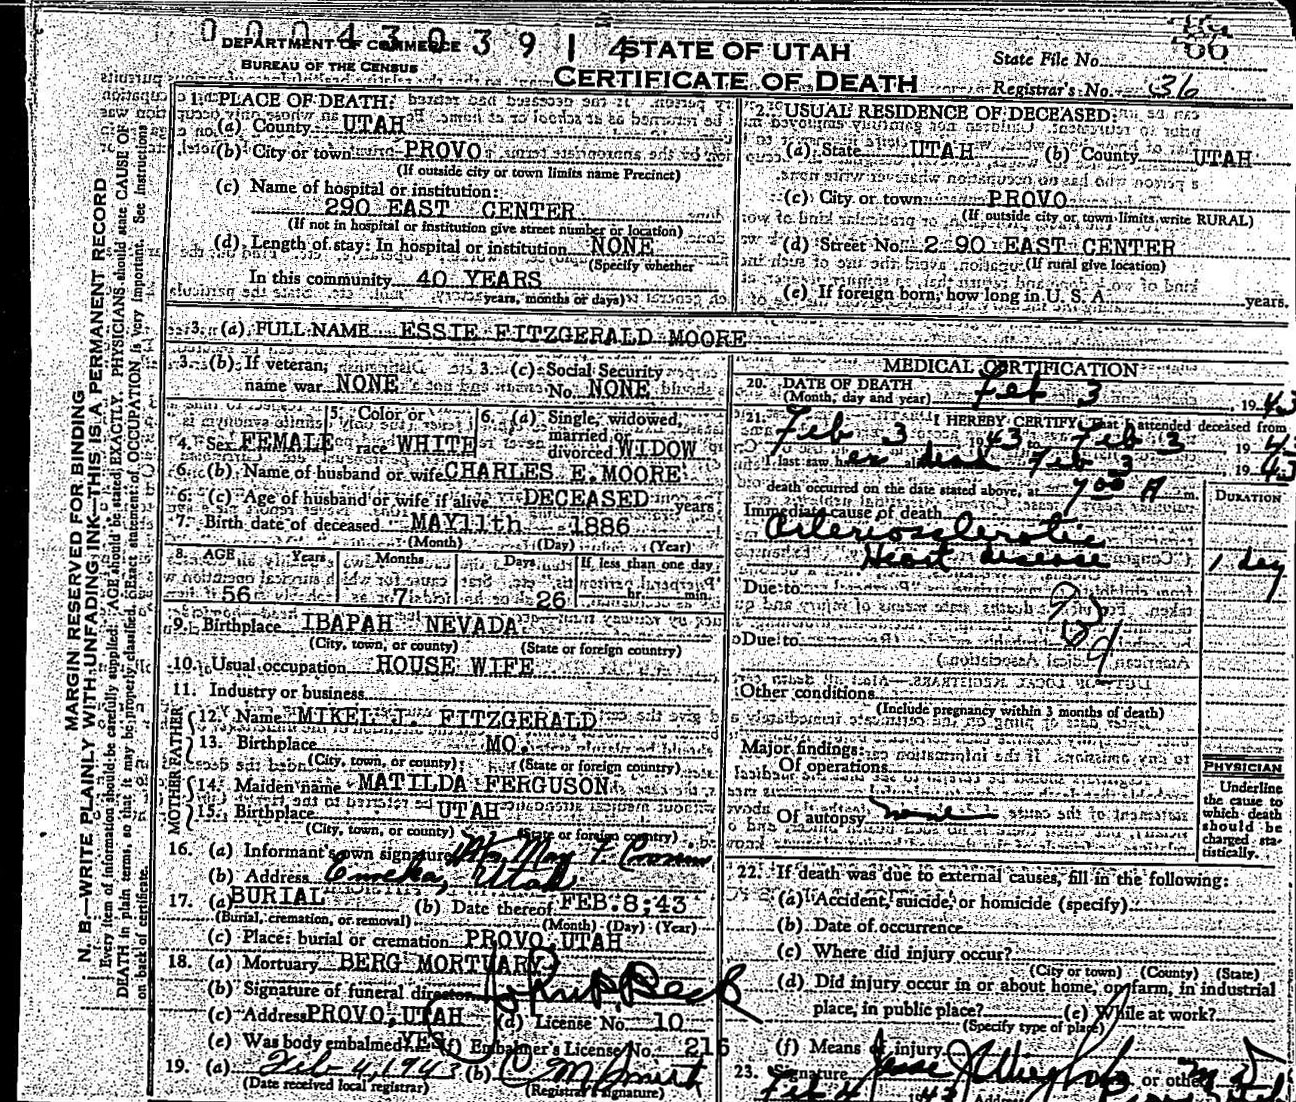 0 0 0 4 3 0 3 9 1 4
DEPARTMENT OF COMMERCE
BUREAU OF THE CENSUS
STATE OF UTAH
CERTIFICATE OF DEATH
State File No.
Registrar's No. 36
MARGIN RESERVED FOR BINDING
N. B.—WRITE PLAINLY WITH UNFADING INK—THIS IS A PERMANENT RECORD
Every item of information should be carefully supplied. AGE should be stated EXACTLY. PHYSICIANS should state CAUSE OF
DEATH in plain terms, so that it may be properly classified. Exact statement of OCCUPATION is very important. See Instructions
on back of certificate.
1. PLACE OF DEATH:
(a) County UTAH
(b) City or town PROVO
(If outside city or town limits name Precinct)
(c) Name of hospital or institution:
290 EAST CENTER
(If not in hospital or institution give street number or location)
(d) Length of stay: In hospital or institution NONE
(Specify whether
In this community 40 YEARS
years, months or days)
2. USUAL RESIDENCE OF DECEASED:
(a) State UTAH (b) County UTAH
(c) City or town PROVO
(If outside city or town limits write RURAL)
(d) Street No. 2 90 EAST CENTER
(If rural give location)
(e) If foreign born, how long in U. S. A. years.
3. (a) FULL NAME ESSIE FITZGERALD MOORE
3. (b) If veteran, name war NONE
3. (c) Social Security No. NONE
4. Sex FEMALE
5. Color or race WHITE
6. (a) Single, widowed, married divorced WIDOW
6. (b) Name of husband or wife CHARLES E. MOORE
6. (c) Age of husband or wife if alive DECEASED years
7. Birth date of deceased MAY 11th 1886
(Month) (Day) (Year)
8. AGE Years Months Days If less than one day
56 7 26 hr. min.
9. Birthplace IBAPAH NEVADA
(City, town, or county) (State or foreign country)
10. Usual occupation HOUSE WIFE
11. Industry or business
FATHER
12. Name MIKEL J. FITZGERALD
13. Birthplace MO.
(City, town, or county) (State or foreign country)
MOTHER
14. Maiden name MATILDA FERGUSON
15. Birthplace UTAH
(City, town, or county) (State or foreign country)
16. (a) Informant's own signature Mrs. May F.
(b) Address Utah
17. (a) BURIAL (b) Date thereof FEB. 8, 43
(Burial, cremation, or removal) (Month) (Day) (Year)
(c) Place: burial or cremation PROVO, UTAH
18. (a) Mortuary BERG MORTUARY
(b) Signature of funeral director
(c) Address PROVO, UTAH (d) License No. 10
(e) Was body embalmed YES (f) Embalmer's License No. 216
19. (a) Feb 4, 1943 (b) C M Smith
(Date received local registrar) (Registrar's signature)
MEDICAL CERTIFICATION
20. DATE OF DEATH Feb 3, 1943
(Month, day and year)
21. I HEREBY CERTIFY that I attended deceased from
Feb 3 1943 to Feb 3 1943
I last saw her dead Feb 3 1943
death occurred on the date stated above, at 7 00 A m.
DURATION
Immediate cause of death
Arteriosclerotic
Heart disease 1 day
Due to
Due to
Other conditions
(Include pregnancy within 3 months of death)
Major findings:
Of operations
Of autopsy none
PHYSICIAN
Underline
the cause to
which death
should be
charged sta-
tistically.
22. If death was due to external causes, fill in the following:
(a) Accident, suicide, or homicide (specify)
(b) Date of occurrence
(c) Where did injury occur?
(City or town) (County) (State)
(d) Did injury occur in or about home, on farm, in industrial
place, in public place? (e) While at work?
(Specify type of place)
(f) Means of injury
23. Signature Jesse or other M D
Feb 4 1943 Address